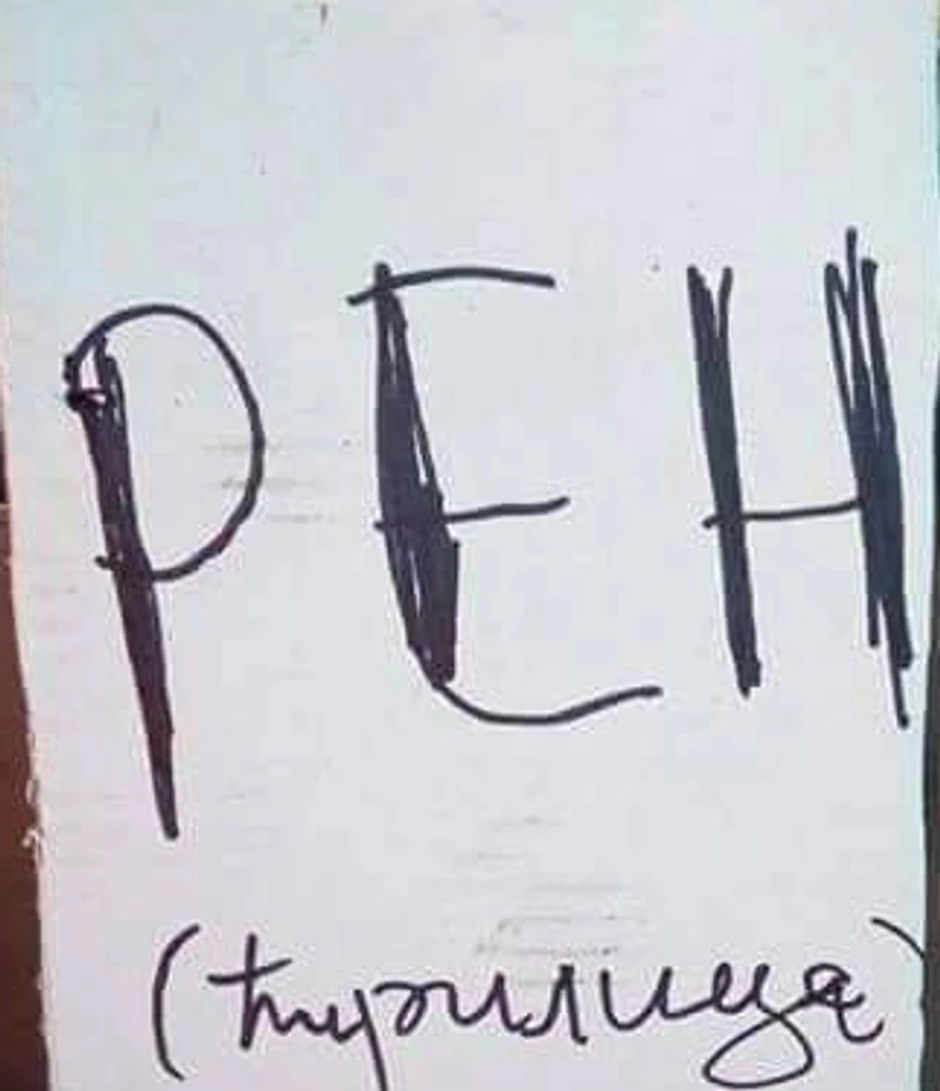 РЕН
(ћирилица)